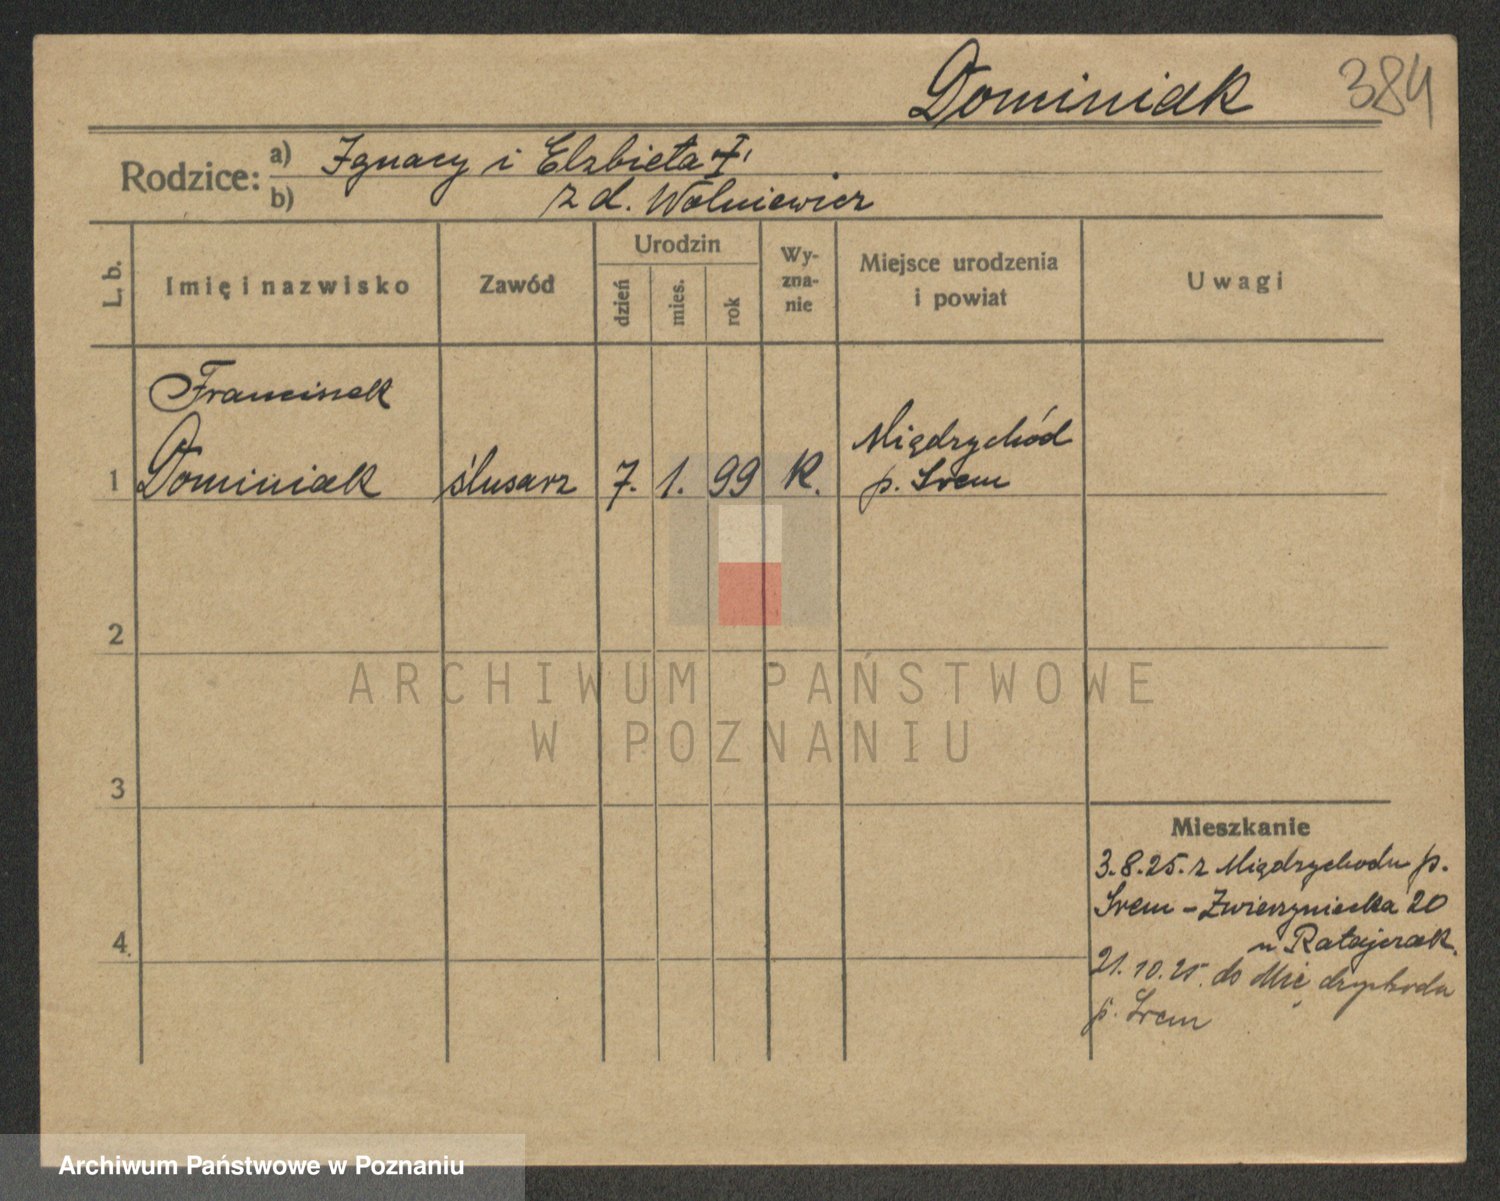 Dominiak 384
Rodzice: a) Ignacy i Elżbieta
b) z d. Wolniewicz
L. b.
Imię i nazwisko
Zawód
Urodzin
dzień
mies.
rok
Wy-
zna-
nie
Miejsce urodzenia
i powiat
Uwagi
Franciszek
1 Dominiak ślusarz 7. 1. 99 k. Międzychód
p. Śrem
2
ARCHIWUM PAŃSTWOWE
W POZNANIU
3
Mieszkanie
3.8.25. z Międzychodu p.
Śrem – Zwierzyniecka 20
u Ratajczak.
4
21.10.25. do Międzychodu
p. Śrem
Archiwum Państwowe w Poznaniu